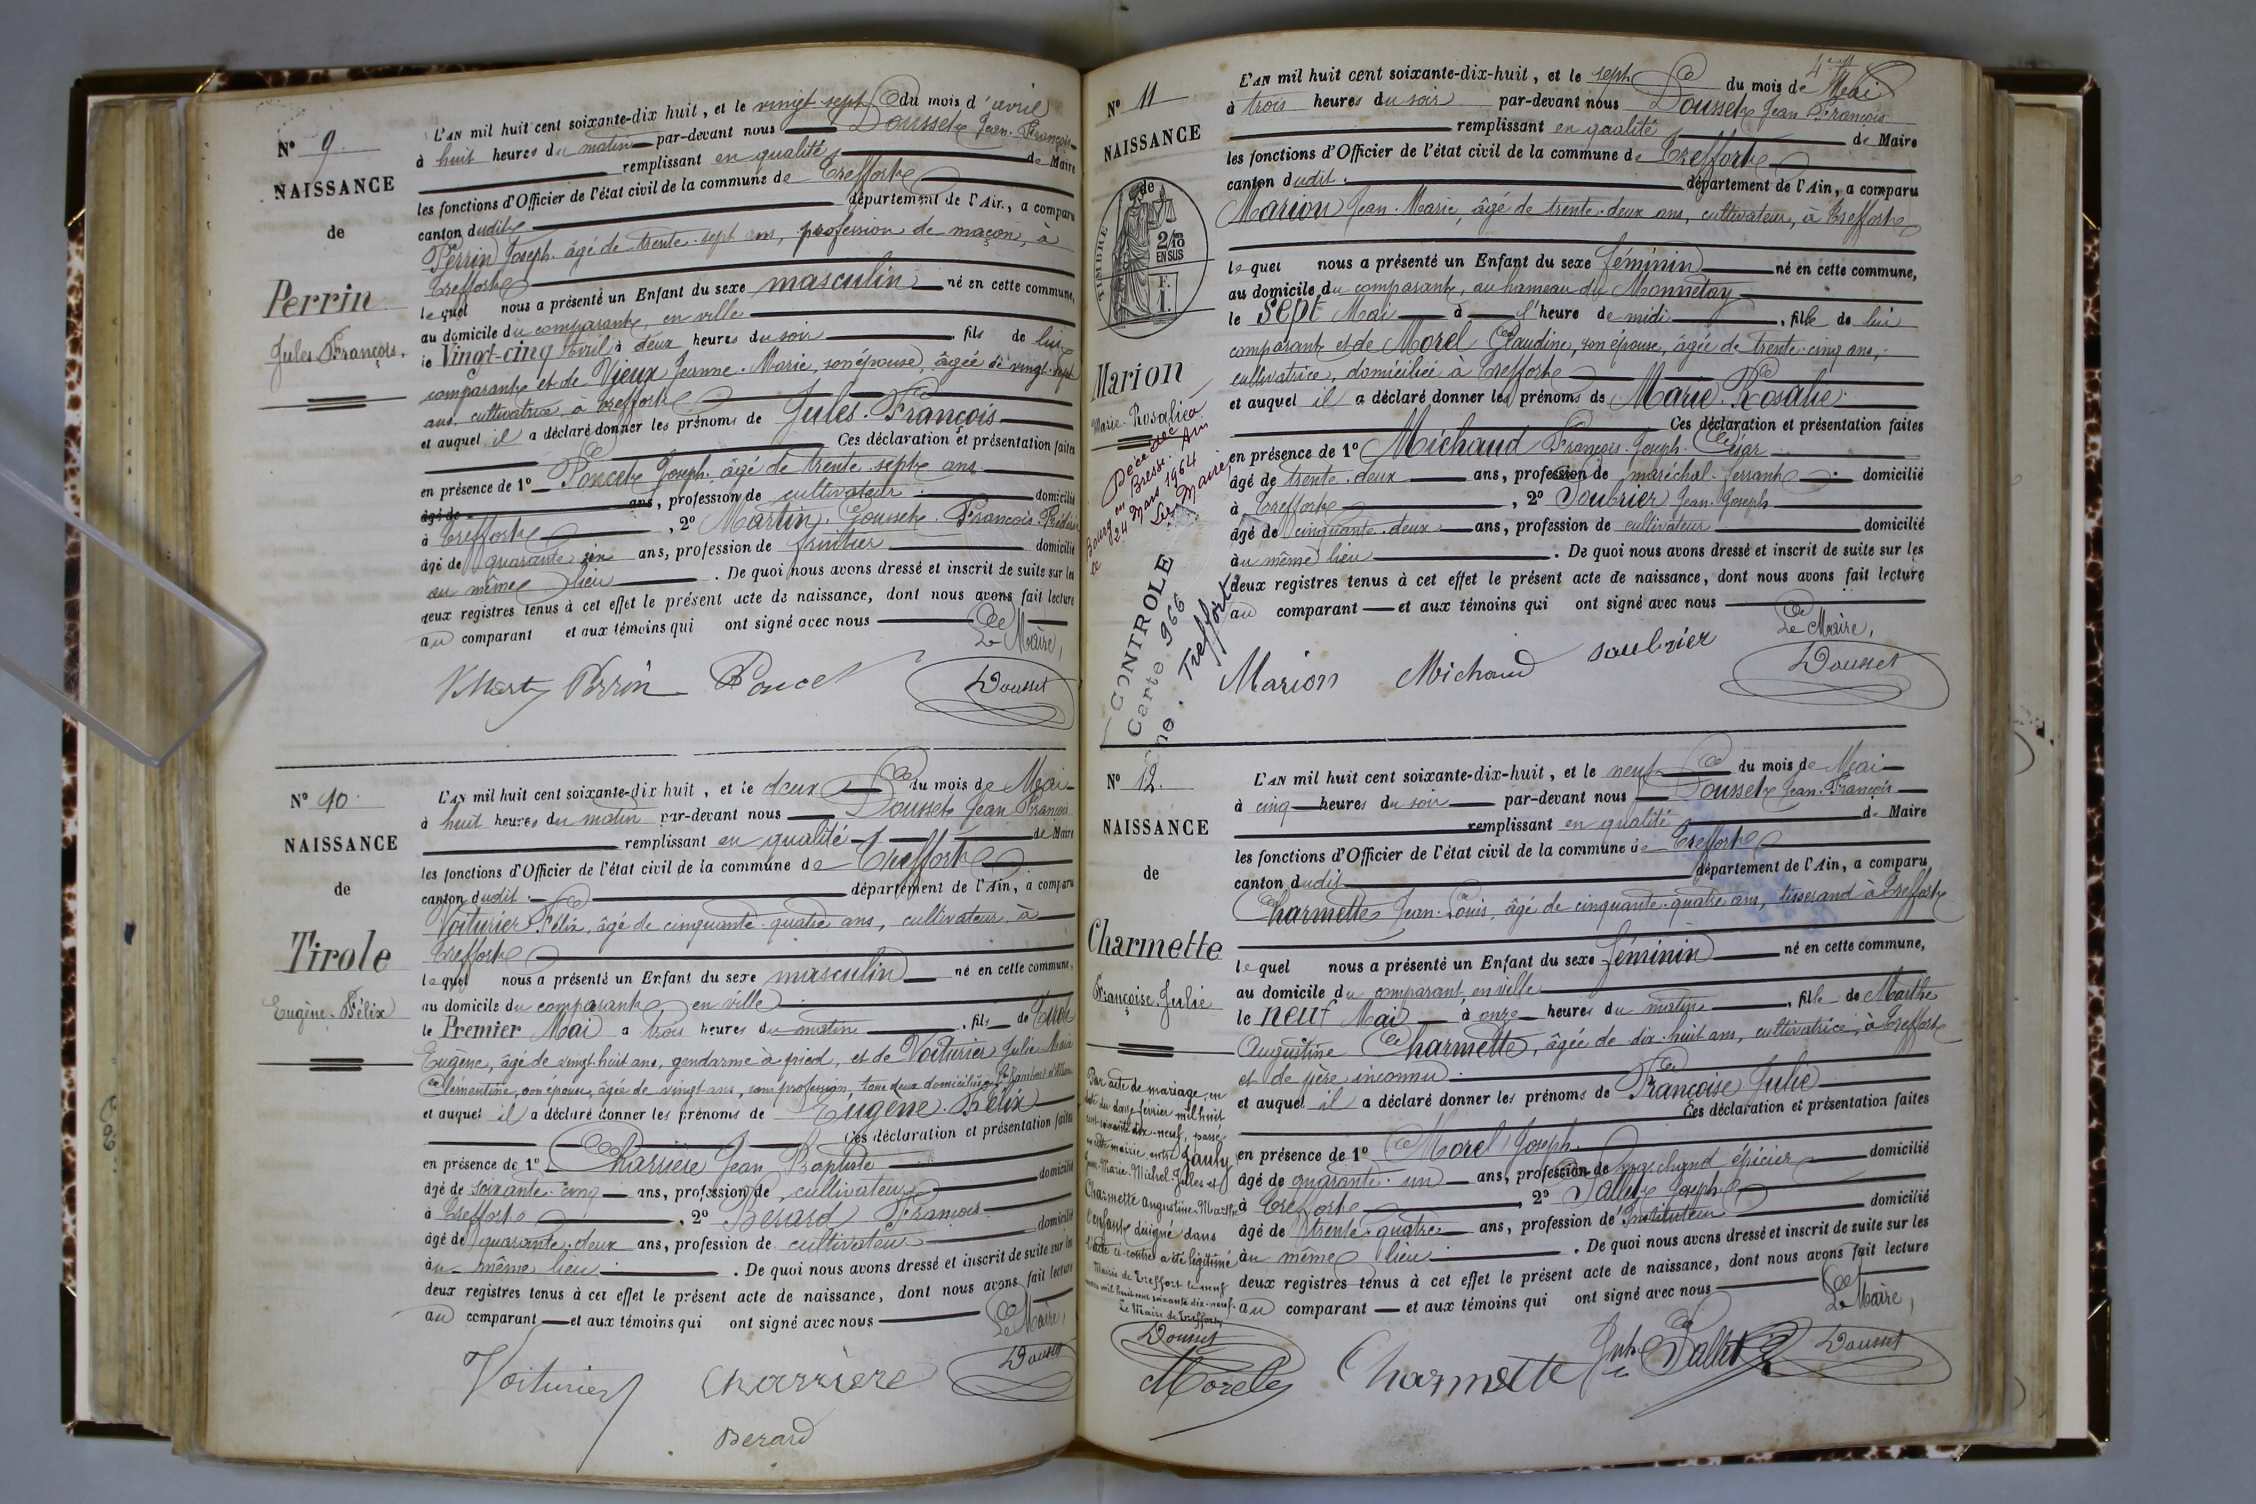 N° 9
NAISSANCE
de
Perrin
Jules François.
L'AN mil huit cent soixante-dix huit, et le vingt sept du mois d'avril
à huit heures du matin par-devant nous Dousset Jean-François
remplissant en qualité de Maire
les fonctions d'Officier de l'état civil de la commune de Treffort
canton dudit département de l'Ain, a comparu
Perrin Joseph âgé de trente-sept ans, profession de maçon, à
Treffort
lequel nous a présenté un Enfant du sexe masculin né en cette commune,
au domicile du comparant, en ville
le Vingt-cinq Avril à deux heures du soir fils de lui
comparant et de Vieux Jeanne-Marie, son épouse, âgée de vingt-sept
ans, cultivatrice, à Treffort
et auquel il a déclaré donner les prénoms de Jules-François
Ces déclaration et présentation faites
en présence de 1° Poncet Joseph âgé de trente-sept ans
âgé de ans, profession de cultivateur domicilié
à Treffort, 2° Martin-Gousset François
âgé de quarante six ans, profession de fruitier domicilié
au même lieu. De quoi nous avons dressé et inscrit de suite sur les
deux registres tenus à cet effet le présent acte de naissance, dont nous avons fait lecture
au comparant et aux témoins qui ont signé avec nous
Le Maire,
Perrin Poncet Dousset
N° 10.
NAISSANCE
de
Tirole
Eugène-Félix
L'AN mil huit cent soixante-dix huit, et le deux du mois de Mai
à huit heures du matin par-devant nous Dousset Jean François
remplissant en qualité de Maire
les fonctions d'Officier de l'état civil de la commune de Treffort
canton dudit département de l'Ain, a comparu
Voiturier Félix, âgé de cinquante-quatre ans, cultivateur à
Treffort
lequel nous a présenté un Enfant du sexe masculin né en cette commune,
au domicile du comparant en ville
le Premier Mai à trois heures du matin, fils de Tirole
Eugène, âgé de vingt-huit ans, gendarme à pied, et de Voiturier Julie Maria
Clémentine, son épouse, âgée de vingt ans, sans profession, tous deux domiciliés
et auquel il a déclaré donner les prénoms de Eugène-Félix
Ces déclaration et présentation faites
en présence de 1° Charrière Jean Baptiste
âgé de soixante-cinq ans, profession de cultivateur domicilié
à Treffort, 2° Berard François
âgé de quarante-deux ans, profession de cultivateur domicilié
au même lieu. De quoi nous avons dressé et inscrit de suite sur les
deux registres tenus à cet effet le présent acte de naissance, dont nous avons fait lecture
au comparant et aux témoins qui ont signé avec nous
Le Maire,
Voiturier Charrière Dousset
Berard
N° 11
NAISSANCE
de
TIMBRE
2/10
EN SUS
F.
1.
Marion
Marie-Rosalie
Décédée à
Bourg en Bresse. Ain
le 24 Mars 1964
Le Maire,
CONTROLE
Carte 966
Treffort
L'AN mil huit cent soixante-dix-huit, et le sept du mois de Mai
à trois heures du soir par-devant nous Dousset Jean François
remplissant en qualité de Maire
les fonctions d'Officier de l'état civil de la commune de Treffort
canton dudit département de l'Ain, a comparu
Marion Jean-Marie, âgé de trente-deux ans, cultivateur, à Treffort
lequel nous a présenté un Enfant du sexe féminin né en cette commune,
au domicile du comparant, au hameau du Monnetay
le Sept Mai à l'heure de midi, fille de lui
comparant et de Morel Claudine, son épouse, âgée de trente-cinq ans,
cultivatrice, domiciliée à Treffort
et auquel il a déclaré donner les prénoms de Marie-Rosalie
Ces déclaration et présentation faites
en présence de 1° Michaud François-Joseph-César
âgé de trente-deux ans, profession de maréchal-ferrant domicilié
à Treffort, 2° Soubrier Jean-Joseph
âgé de cinquante-deux ans, profession de cultivateur domicilié
au même lieu. De quoi nous avons dressé et inscrit de suite sur les
deux registres tenus à cet effet le présent acte de naissance, dont nous avons fait lecture
au comparant et aux témoins qui ont signé avec nous
Le Maire,
Marion Michaud Dousset
N° 12.
NAISSANCE
de
Charmette
Françoise-Julie
Par acte de mariage, en
date du douze février mil huit
cent soixante dix-neuf, passé
en cette mairie, entre Gauly
Jean-Marie-Michel-Gilles et
Charmette Augustine-Marthe
l'enfant désigné dans
l'acte ci-contre a été légitimé
Mairie de Treffort le neuf
mars mil huit cent soixante dix-neuf.
Le Maire de Treffort
Dousset
L'AN mil huit cent soixante-dix-huit, et le neuf du mois de Mai
à cinq heures du soir par-devant nous Dousset Jean-François
remplissant en qualité de Maire
les fonctions d'Officier de l'état civil de la commune de Treffort
canton dudit département de l'Ain, a comparu
Charmette Jean-Louis, âgé de cinquante-quatre ans, tisserand à Treffort
lequel nous a présenté un Enfant du sexe féminin né en cette commune,
au domicile du comparant en ville
le neuf Mai à onze heures du matin, fille de Marthe
Augustine Charmette, âgée de dix-huit ans, cultivatrice, à Treffort
et de père inconnu
et auquel il a déclaré donner les prénoms de Françoise Julie
Ces déclaration et présentation faites
en présence de 1° Morel Joseph
âgé de quarante-un ans, profession de marchand épicier domicilié
à Treffort, 2° Pallet Joseph
âgé de trente-quatre ans, profession de Instituteur domicilié
au même lieu. De quoi nous avons dressé et inscrit de suite sur les
deux registres tenus à cet effet le présent acte de naissance, dont nous avons fait lecture
au comparant et aux témoins qui ont signé avec nous
Le Maire,
Morel Charmette Pallet Dousset